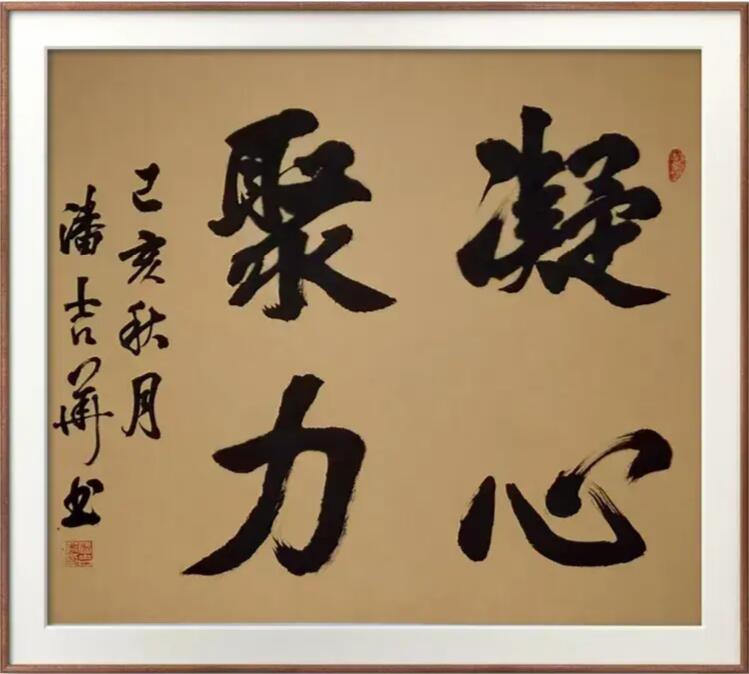 凝心
聚力
己亥秋月
潘吉华书